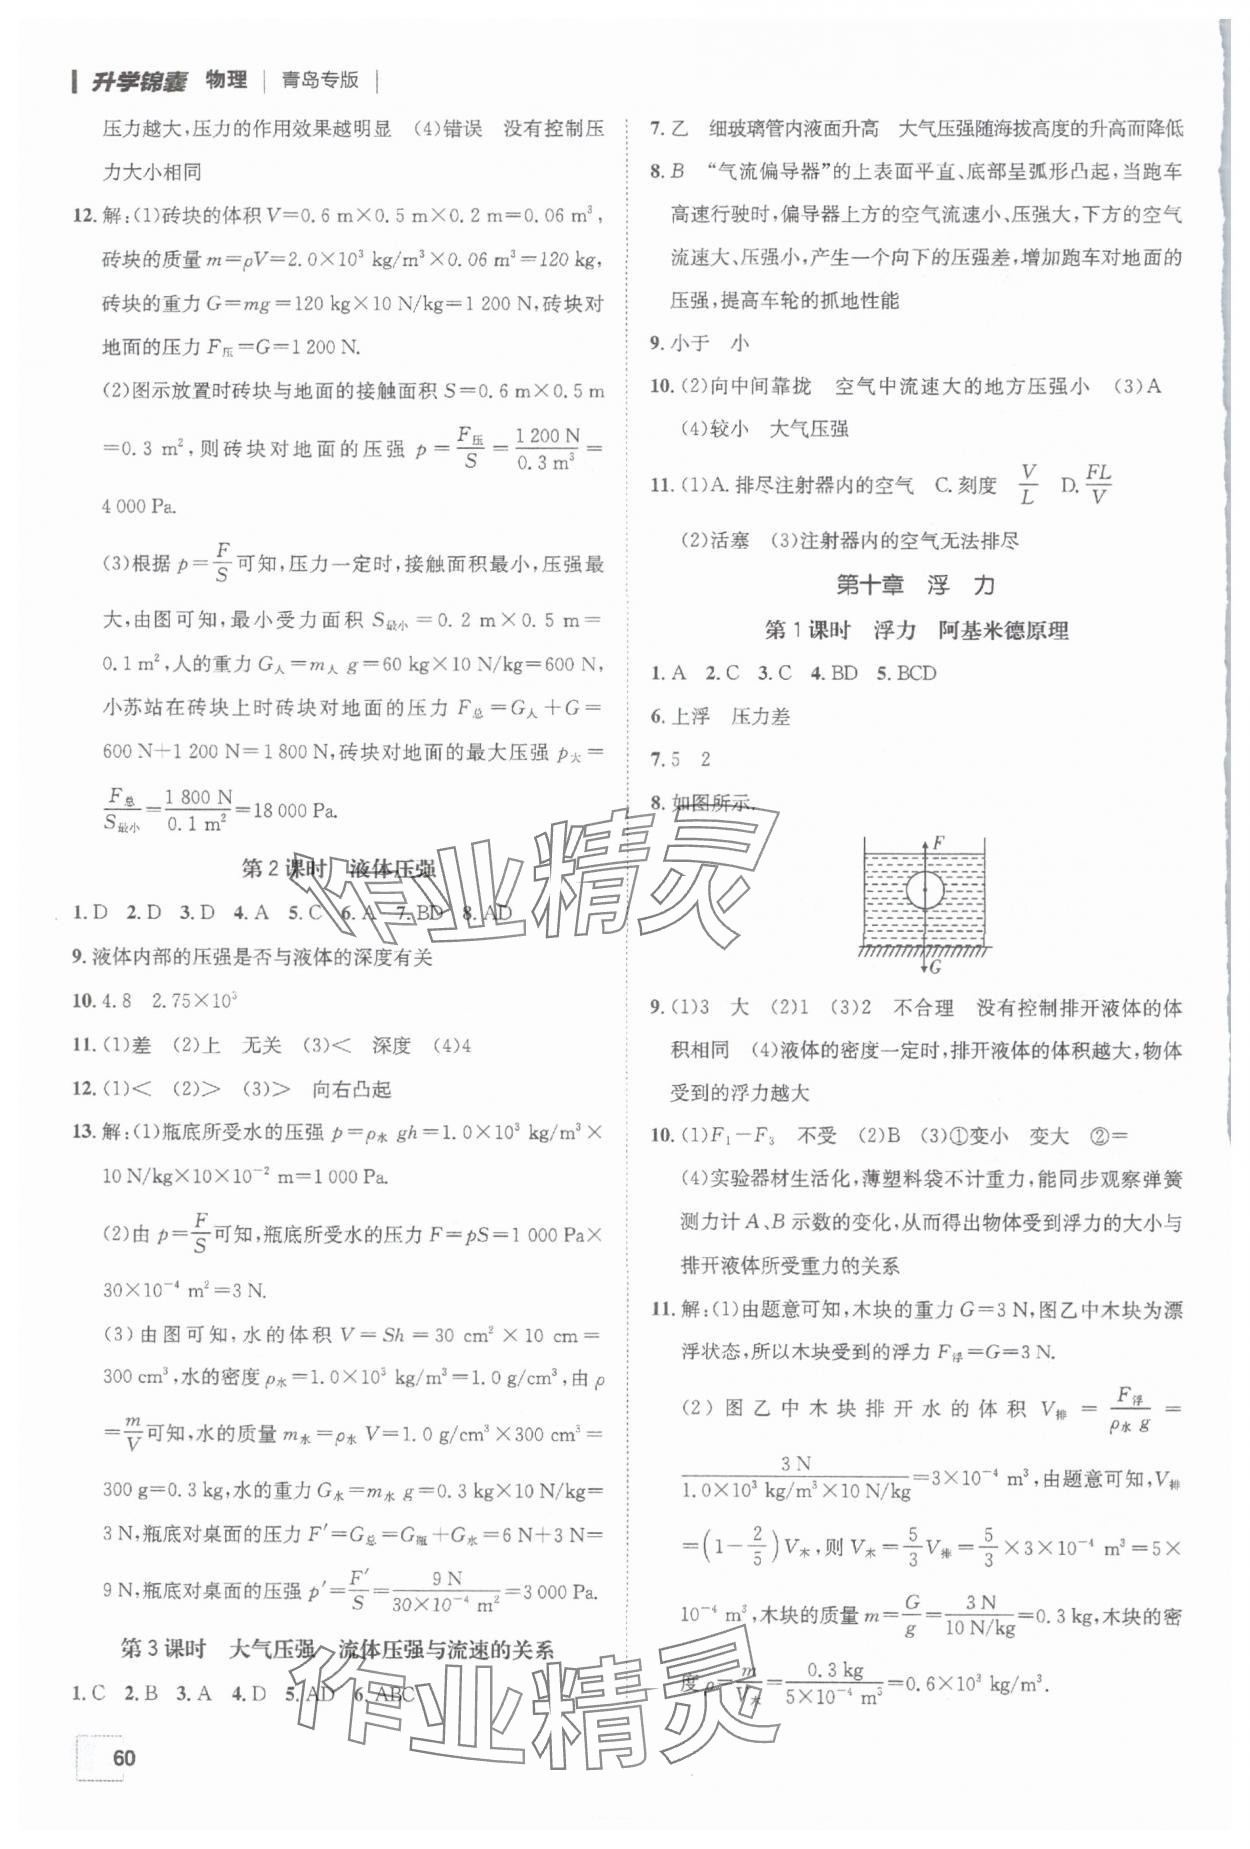 升学锦囊 物理 | 青岛专版 |
压力越大,压力的作用效果越明显 (4)错误 没有控制压
力大小相同
12. 解:(1)砖块的体积 V=0.6 m×0.5 m×0.2 m=0.06 m³,
砖块的质量 m=ρV=2.0×10³ kg/m³×0.06 m³=120 kg,
砖块的重力 G=mg=120 kg×10 N/kg=1 200 N,砖块对
地面的压力 F压=G=1 200 N.
(2)图示放置时砖块与地面的接触面积 S=0.6 m×0.5 m
=0.3 m²,则砖块对地面的压强 p=F压/S=1 200 N/0.3 m³=
4 000 Pa.
(3)根据 p=F/S可知,压力一定时,接触面积最小,压强最
大,由图可知,最小受力面积 S最小=0.2 m×0.5 m=
0.1 m²,人的重力 G人=m人 g=60 kg×10 N/kg=600 N,
小苏站在砖块上时砖块对地面的压力 F总=G人+G=
600 N+1 200 N=1 800 N,砖块对地面的最大压强 p大=
F总/S最小=1 800 N/0.1 m²=18 000 Pa.
第2课时 液体压强
1. D 2. D 3. D 4. A 5. C 6. A 7. BD 8. AD
9. 液体内部的压强是否与液体的深度有关
10. 4.8 2.75×10³
11. (1)差 (2)上 无关 (3)< 深度 (4)4
12. (1)< (2)> (3)> 向右凸起
13. 解:(1)瓶底所受水的压强 p=ρ水 gh=1.0×10³ kg/m³×
10 N/kg×10×10⁻² m=1 000 Pa.
(2)由 p=F/S可知,瓶底所受水的压力 F=pS=1 000 Pa×
30×10⁻⁴ m²=3 N.
(3)由图可知,水的体积 V=Sh=30 cm²×10 cm=
300 cm³,水的密度 ρ水=1.0×10³ kg/m³=1.0 g/cm³,由 ρ
=m/V可知,水的质量 m水=ρ水 V=1.0 g/cm³×300 cm³=
300 g=0.3 kg,水的重力 G水=m水 g=0.3 kg×10 N/kg=
3 N,瓶底对桌面的压力 F′=G总=G瓶+G水=6 N+3 N=
9 N,瓶底对桌面的压强 p′=F′/S=9 N/30×10⁻⁴ m²=3 000 Pa.
第3课时 大气压强 流体压强与流速的关系
1. C 2. B 3. A 4. D 5. AD 6. ABC
60
7. 乙 细玻璃管内液面升高 大气压强随海拔高度的升高而降低
8. B “气流偏导器”的上表面平直、底部呈弧形凸起,当跑车
高速行驶时,偏导器上方的空气流速小、压强大,下方的空气
流速大、压强小,产生一个向下的压强差,增加跑车对地面的
压强,提高车轮的抓地性能
9. 小于 小
10. (2)向中间靠拢 空气中流速大的地方压强小 (3)A
(4)较小 大气压强
11. (1)A. 排尽注射器内的空气 C. 刻度 V/L D. FL/V
(2)活塞 (3)注射器内的空气无法排尽
第十章 浮 力
第1课时 浮力 阿基米德原理
1. A 2. C 3. C 4. BD 5. BCD
6. 上浮 压力差
7. 5 2
8. 如图所示.
F
G
9. (1)3 大 (2)1 (3)2 不合理 没有控制排开液体的体
积相同 (4)液体的密度一定时,排开液体的体积越大,物体
受到的浮力越大
10. (1)F₁-F₃ 不受 (2)B (3)①变小 变大 ②=
(4)实验器材生活化,薄塑料袋不计重力,能同步观察弹簧
测力计 A、B 示数的变化,从而得出物体受到浮力的大小与
排开液体所受重力的关系
11. 解:(1)由题意可知,木块的重力 G=3 N,图乙中木块为漂
浮状态,所以木块受到的浮力 F浮=G=3 N.
(2)图乙中木块排开水的体积 V排=F浮/ρ水 g=
3 N/1.0×10³ kg/m³×10 N/kg=3×10⁻⁴ m³,由题意可知,V排
=(1-2/5)V木,则 V木=5/3V排=5/3×3×10⁻⁴ m³=5×
10⁻⁴ m³,木块的质量 m=G/g=3 N/10 N/kg=0.3 kg,木块的密
度 ρ=m/V木=0.3 kg/5×10⁻⁴ m³=0.6×10³ kg/m³.
作业精灵
作业精灵